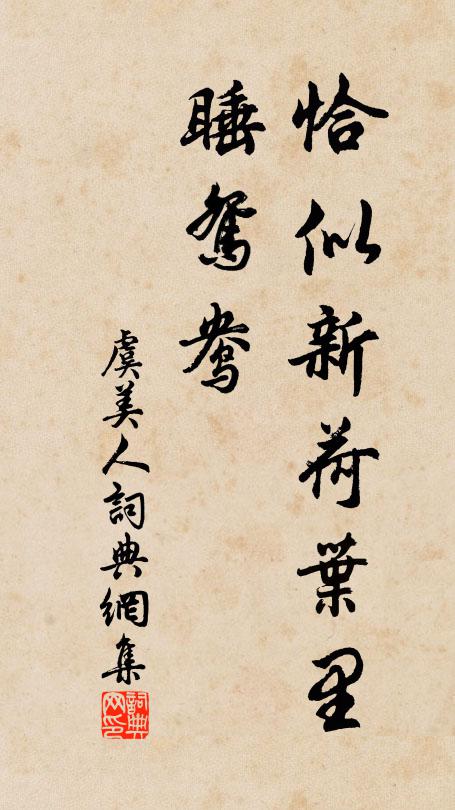 恰似新荷葉里
睡鴛鴦
虞美人詞典網集
詞典
网印